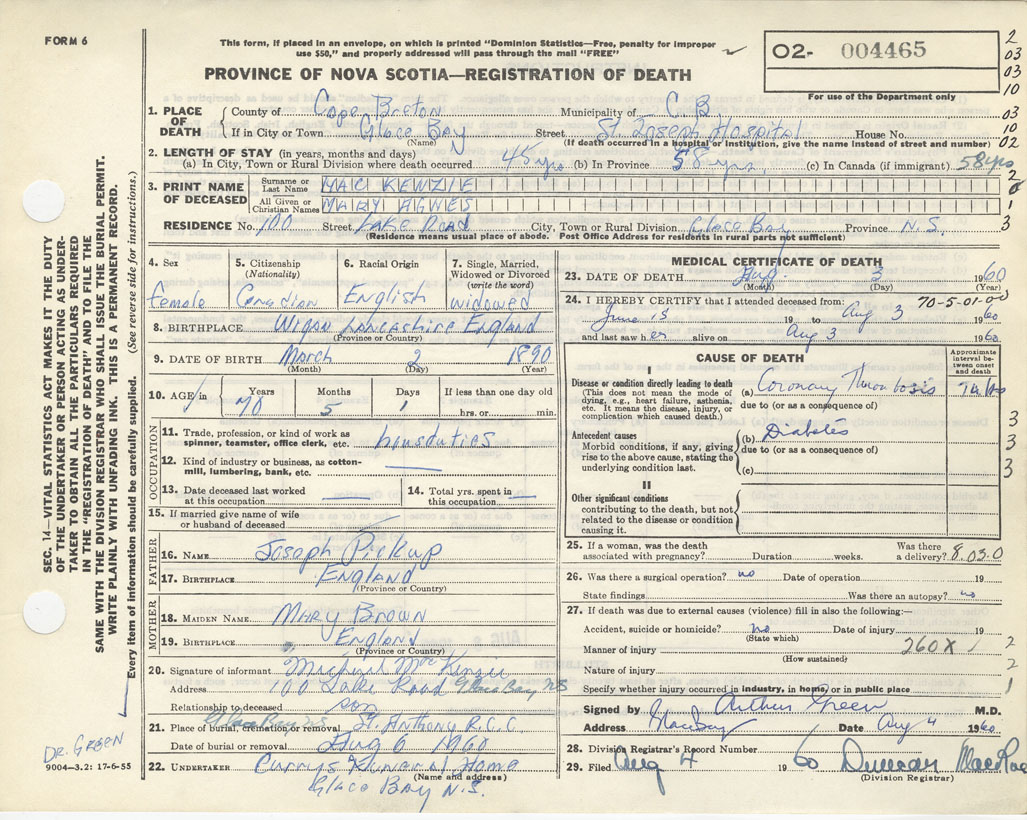 FORM 6
This form, if placed in an envelope, on which is printed "Dominion Statistics—Free, penalty for improper
use $50," and properly addressed will pass through the mail "FREE"
PROVINCE OF NOVA SCOTIA—REGISTRATION OF DEATH
02- 004465
For use of the Department only
2
03
03
10
03
10
02
2
1
3
1. PLACE OF DEATH County of Cape Breton Municipality of C.B
If in City or Town Glace Bay Street St. Joseph Hospital House No.
(Name) (If death occurred in a hospital or institution, give the name instead of street and number)
2. LENGTH OF STAY (in years, months and days)
(a) In City, Town or Rural Division where death occurred 45 yrs (b) In Province 58 yrs. (c) In Canada (if immigrant) 58 yrs
3. PRINT NAME OF DECEASED Surname or Last Name MAC KENZIE
All Given or Christian Names MARY AGNES
RESIDENCE No. 100 Street LAKE ROAD City, Town or Rural Division Glace Bay Province N.S.
(Residence means usual place of abode. Post Office Address for residents in rural parts not sufficient)
4. Sex 5. Citizenship (Nationality) 6. Racial Origin 7. Single, Married, Widowed or Divorced (write the word)
female Canadian English widowed
8. BIRTHPLACE Wigan Lancashire England
(Province or Country)
9. DATE OF BIRTH March 2 1890
(Month) (Day) (Year)
10. AGE Years Months Days If less than one day old
70 5 1 hrs. or min.
OCCUPATION
11. Trade, profession, or kind of work as spinner, teamster, office clerk, etc. housduties
12. Kind of industry or business, as cotton-mill, lumbering, bank, etc.
13. Date deceased last worked at this occupation 14. Total yrs. spent in this occupation
15. If married give name of wife or husband of deceased
FATHER
16. NAME Joseph Pickup
17. BIRTHPLACE ENGLAND
(Province or Country)
MOTHER
18. MAIDEN NAME Mary Brown
19. BIRTHPLACE England
(Province or Country)
20. Signature of informant Michael MacKinzie
Address 100 Lake Road Glace Bay NS
Relationship to deceased son
21. Place of burial, cremation or removal Glace Bay NS St. Anthony R.C.C
Date of burial or removal Aug 6 1960
22. UNDERTAKER Currys Funeral Home
(Name and address)
Glace Bay N.S.
MEDICAL CERTIFICATE OF DEATH
23. DATE OF DEATH Aug. 3 1960
(Month) (Day) (Year)
24. I HEREBY CERTIFY that I attended deceased from: 70-5-01-00
June 15 19 to Aug 3 1960
and last saw her alive on Aug 3 1960
CAUSE OF DEATH
Approximate interval between onset and death
I
Disease or condition directly leading to death (a) Coronary Thrombosis
(This does not mean the mode of dying, e.g., heart failure, asthenia, etc. It means the disease, injury, or complication which caused death.)
due to (or as a consequence of)
Antecedent causes (b) Diabetes
Morbid conditions, if any, giving rise to the above cause, stating the underlying condition last.
due to (or as a consequence of)
(c)
II
Other significant conditions
contributing to the death, but not related to the disease or condition causing it.
3
3
3
25. If a woman, was the death associated with pregnancy? Duration weeks. Was there a delivery? 8.03.0
26. Was there a surgical operation? no Date of operation 19
State findings Was there an autopsy? no
27. If death was due to external causes (violence) fill in also the following:—
Accident, suicide or homicide? no Date of injury 19
(State which)
Manner of injury 260X
(How sustained)
Nature of injury
Specify whether injury occurred in industry, in home, or in public place
2
2
1
Signed by Arthur Green M.D.
Address Glace Bay Date Aug 4 1960
28. Division Registrar's Record Number
29. Filed Aug 4 1960 Duncan MacRae
(Division Registrar)
SEC. 14—VITAL STATISTICS ACT MAKES IT THE DUTY
OF THE UNDERTAKER OR PERSON ACTING AS UNDER-
TAKER TO OBTAIN ALL THE PARTICULARS REQUIRED
IN THE "REGISTRATION OF DEATH" AND TO FILE THE
SAME WITH THE DIVISION REGISTRAR WHO SHALL ISSUE THE BURIAL PERMIT.
WRITE PLAINLY WITH UNFADING INK. THIS IS A PERMANENT RECORD.
Every item of information should be carefully supplied. (See reverse side for instructions.)
DR. GREEN
9004-3.2: 17-6-55